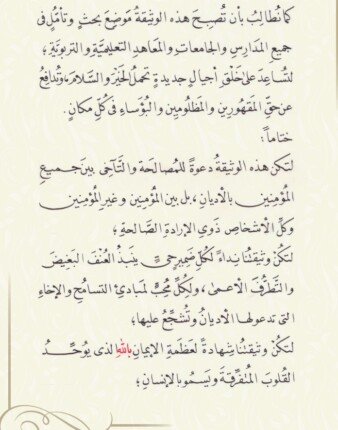 كما نُطالِبُ بأن تُصبِحَ هذه الوثيقةُ مَوضِعَ بحثٍ وتأمُّلٍ في
جميعِ المَدارِسِ والجامعاتِ والمَعاهدِ التعليميَّةِ والتربويَّةِ؛
لتُساعِدَ على خَلْقِ أجيالٍ جديدةٍ تحملُ الخَيْرَ والسَّلامَ، وتُدافِعُ
عن حَقِّ المَقهُورِين والمَظلُومِين والبُؤَساءِ في كُلِّ مكانٍ.
ختاماً:
لتكن هذه الوثيقةُ دعوةً للمُصالَحة والتَّآخِي بين جميعِ
المُؤمِنين بالأديانِ، بل بين المُؤمِنين وغيرِ المُؤمِنين
وكلِّ الأشخاصِ ذَوِي الإرادةِ الصَّالحةِ؛
لتكُنْ وثيقتُنا نِداءً لكلِّ ضميرٍ حيٍّ ينبذُ العُنْفَ البَغِيضَ
والتَّطرُّفَ الأعمى، ولكلِّ مُحِبٍّ لمَبادئِ التسامُحِ والإخاءِ
التي تدعو لها الأديانُ وتُشجِّعُ عليها؛
لتكُنْ وثيقتُنا شِهادةً لعَظَمةِ الإيمانِ باللهِ الذي يُوحِّدُ
القُلوبَ المُتفرِّقةَ ويَسمُو بالإنسانِ؛